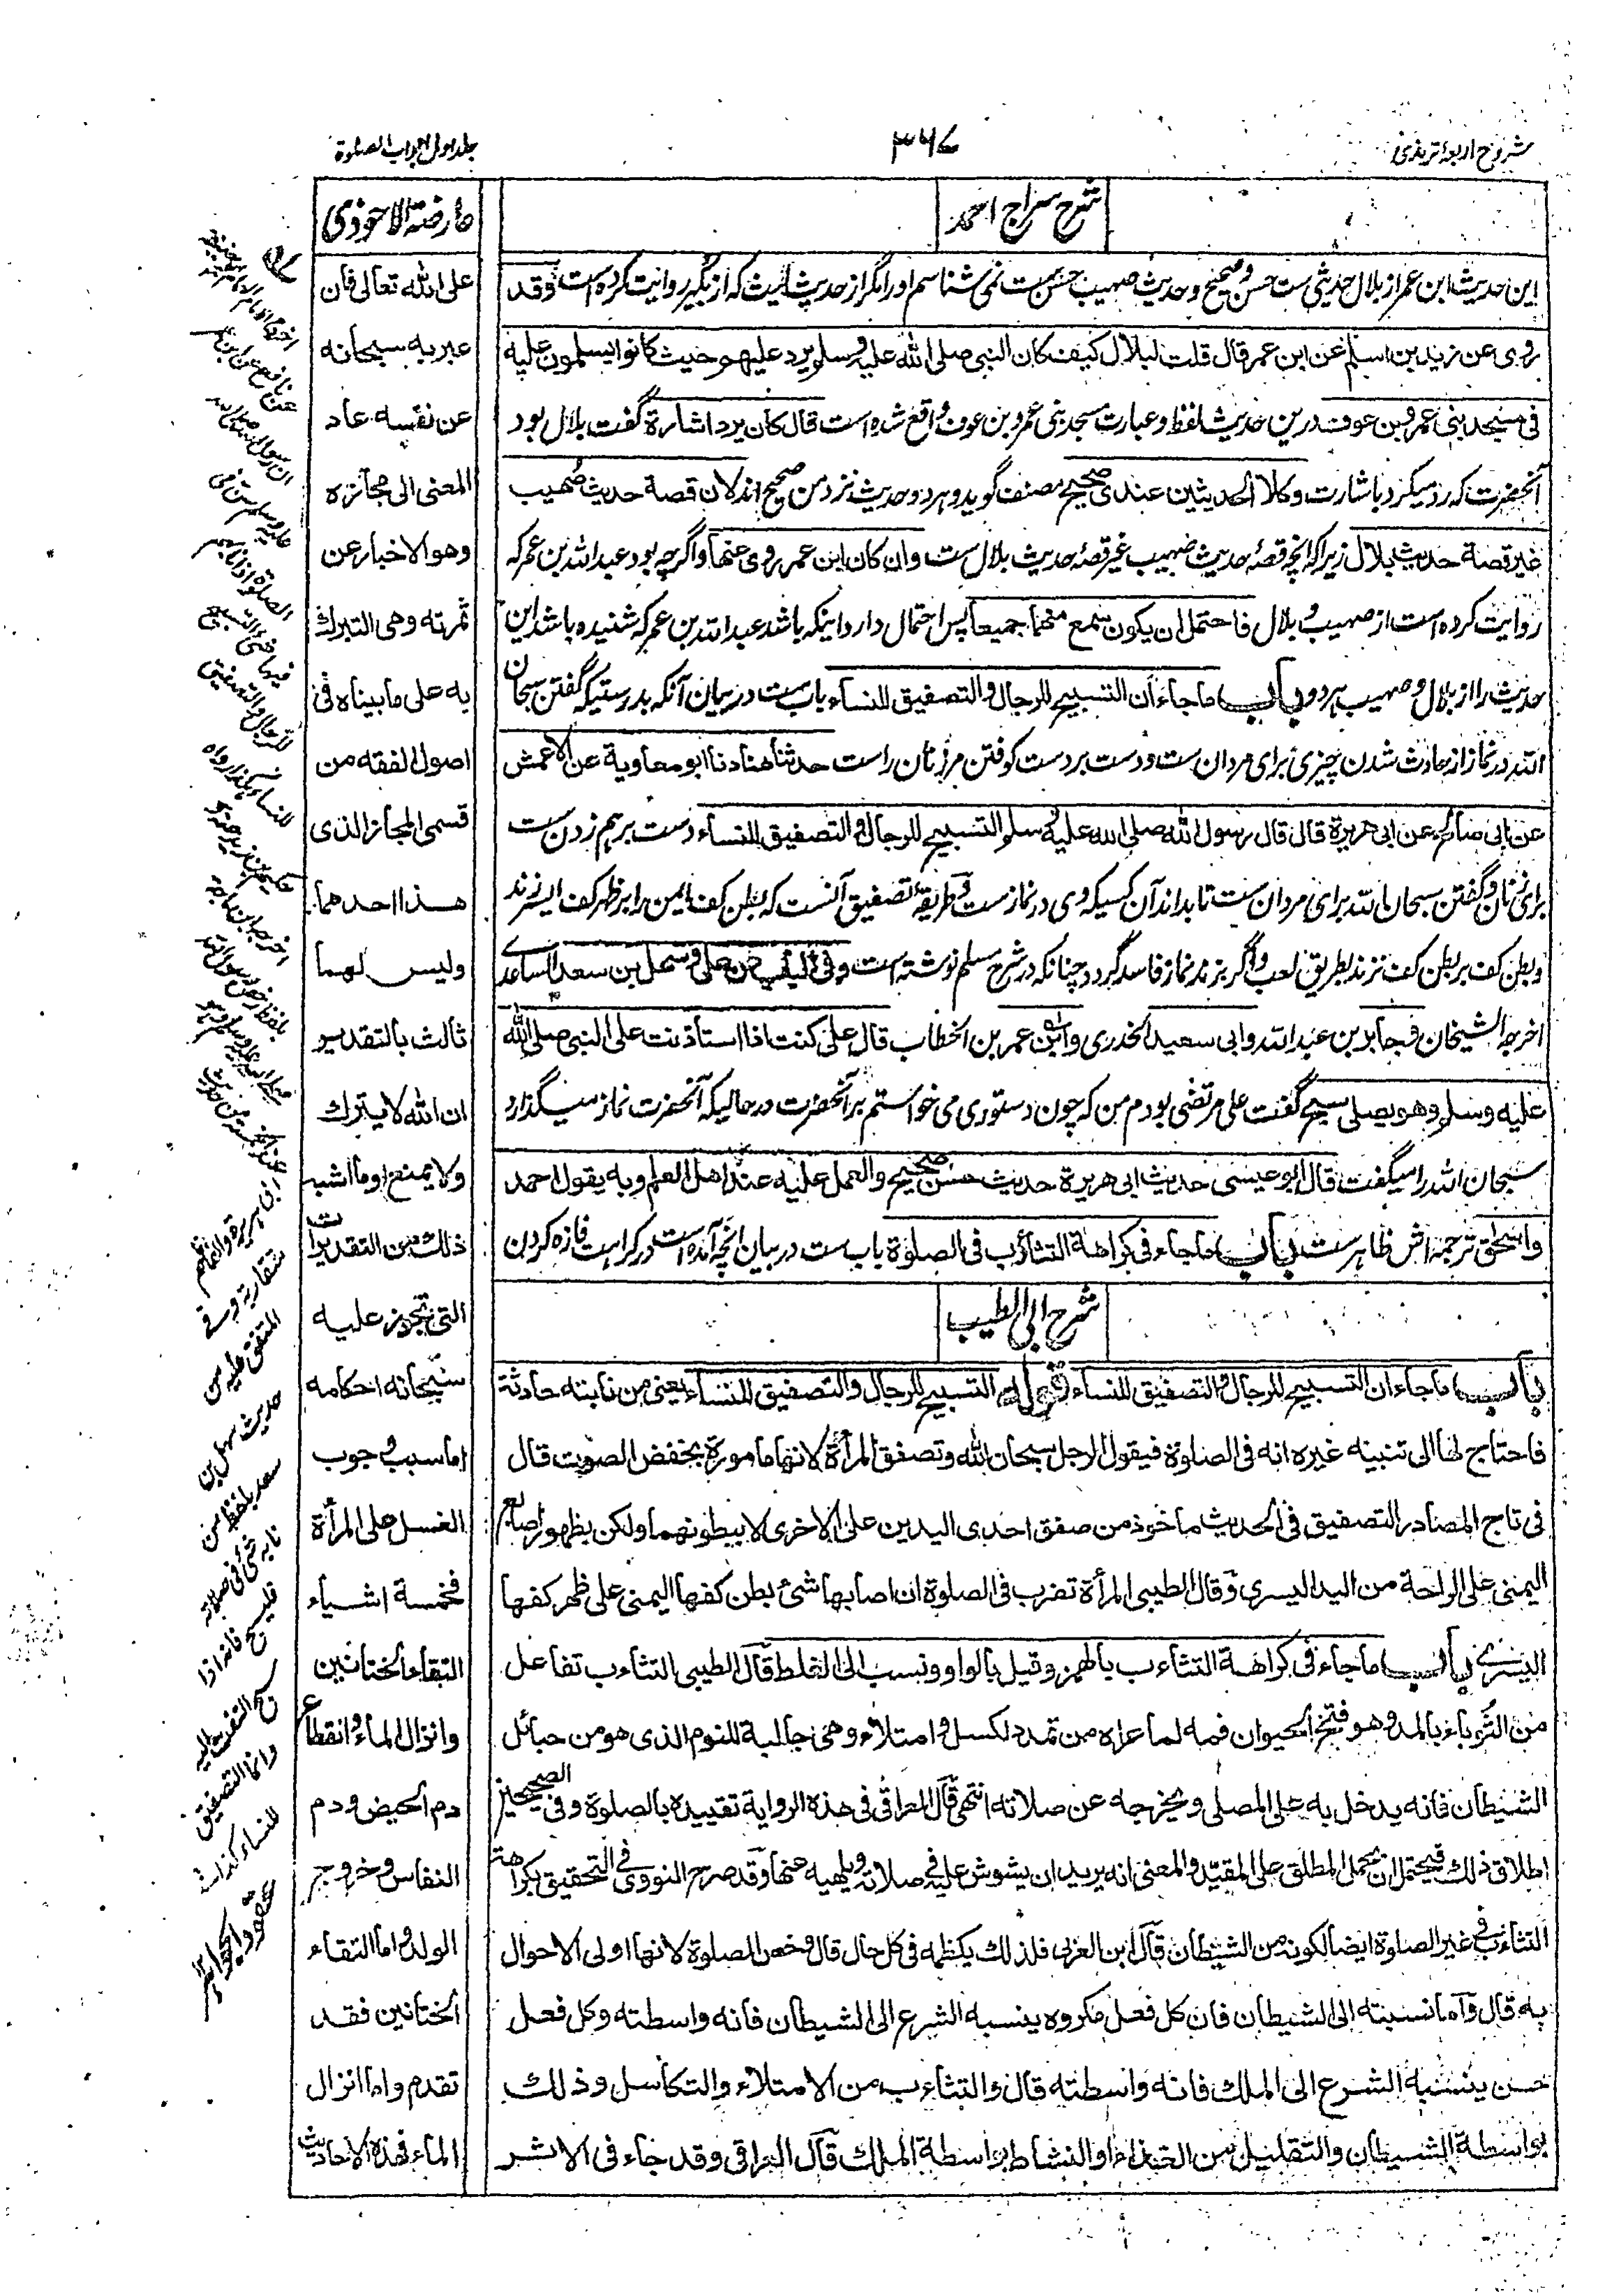 شروح اربعۀ ترمذی
۳۶۷
جلد اول ابواب الصلوة
شرح سراج احمد
این حدیث ابن عمر از بلال حدیثی ست حسن و صحیح و حدیث صهیب حسن ست نمی شناسم او را مگر از حدیث لیث که از بکیر روایت کرده است وقد
روی عن زید بن اسلم عن ابن عمر قال قلت لبلال کیف کان النبی صلی الله علیه وسلم یرد علیهم حیث کانوا یسلمون علیه
فی مسجد بنی عمرو بن عوف درین حدیث لفظ و عبارت مسجد بنی عمرو بن عوف واقع شده است قال کان یرد اشارة گفت بلال بود
آنحضرت که رد میکرد باشارت وکلا الحدیثین عندی صحیح مصنف گوید و هر دو حدیث نزد من صحیح اند لان قصة حدیث صهیب
غیر قصة حدیث بلال زیرا که انچه قصۀ حدیث صهیب غیر قصۀ حدیث بلال ست وان کان ابن عمر روی عنهما و اگرچه بود عبد الله بن عمر که
روایت کرده است از صهیب و بلال فاحتمل ان یکون سمع منهما جمیعا پس احتمال دارد اینکه باشد عبد الله بن عمر که شنیده باشد این
حدیث را از بلال و صهیب هر دو باب ما جاء ان التسبیح للرجال والتصفیق للنساء باب ست در بیان آنکه بدرستیکه گفتن سبحان
الله در نماز از حادث شدن چیزی برای مردان ست و دست بر دست کوفتن مر زنان راست حدثنا هناد نا ابو معاویة عن الاعمش
عن ابی صالح عن ابی هریرة قال قال رسول الله صلی الله علیه وسلم التسبیح للرجال والتصفیق للنساء دست بر هم زدن ست
برای زنان و گفتن سبحان الله برای مردان ست تا بداند آن کسیکه وی در نماز ست و طریقۀ تصفیق آنست که بطن کف ایمن را بر ظهر کف ایسر زند
و بطن کف بر بطن کف نزند بطریق لعب و اگر بزند نماز فاسد گردد چنانکه در شرح مسلم نوشته است وفی الباب عن علی وسهل بن سعد الساعدی
اخرجه الشیخان وجابر بن عبد الله وابی سعید الخدری وابن عمر بن الخطاب قال علی کنت اذا استأذنت علی النبی صلی الله
علیه وسلم وهو یصلی سبح گفت علی مرتضی بودم من که چون دستوری می خواستم بر آنحضرت در حالیکه آنحضرت نماز میگذارد
سبحان الله را میگفت قال ابو عیسی حدیث ابی هریرة حدیث حسن صحیح والعمل علیه عند اهل العلم وبه یقول احمد
واسحق ترجمه اش ظاهر ست باب ما جاء فی کراهة التثاؤب فی الصلوة باب ست در بیان انچه آمده است در کراهت فازه کردن
شرح ابی الطیب
باب ما جاء ان التسبیح للرجال والتصفیق للنساء قوله التسبیح للرجال والتصفیق للنساء یعنی من نابته حادثة
فاحتاج لها الی تنبیه غیره انه فی الصلوة فیقول الرجل سبحان الله وتصفق المرأة لانها مامورة بخفض الصوت قال
فی تاج المصادر التصفیق فی الحدیث ماخوذ من صفق احدی الیدین علی الاخری لا ببطونهما ولکن بظهور اصابع
الیمنی علی الراحة من الید الیسری وقال الطیبی المرأة تضرب فی الصلوة ان اصابها شئ بطن کفها الیمنی علی ظهر کفها
الیسری باب ما جاء فی کراهة التثاءب بالهمز وقیل بالواو ونسب الی الغلط قال الطیبی التثاءب تفاعل
من الثوباء بالمد وهو فتح الحیوان فمه لما عراه من تمدد لکسل وامتلاء وهی جالبة للنوم الذی هو من حبائل
الشیطان فانه یدخل به علی المصلی ویخرجه عن صلاته انتهی قال العراقی فی هذه الروایة تقییده بالصلوة وفی الصحیحین
اطلاق ذلک فیحتمل ان یحمل المطلق علی المقید والمعنی انه یرید ان یشوش علیه فی صلاته ویلهیه عنها وقد صرح النووی فی التحقیق بکراهة
التثاءب فی غیر الصلوة ایضا لکونه من الشیطان قال ابن العربی فلذلک یکظمه فی کل حال قال وخص الصلوة لانها اولی الاحوال
به قال واما نسبته الی الشیطان فان کل فعل مکروه ینسبه الشرع الی الشیطان فانه واسطته وکل فعل
حسن ینسبه الشرع الی الملک فانه واسطته قال والتثاءب من الامتلاء والتکاسل وذلک
بواسطة الشیطان والتقلیل من الغذاء والنشاط بواسطة الملک قال العراقی وقد جاء فی الاثر
عارضة الاحوذی
علی الله تعالی فان
عبر به سبحانه
عن نفسه عاد
المعنی الی مجازه
وهو الاخبار عن
ثمرته وهی التبرك
به علی ما بیناه فی
اصول الفقه من
قسمی المجاز الذی
هذا احدهما
ولیس لهما
ثالث بالتقدیر
ان الله لا یترك
ولا یمنع او ما اشبه
ذلك من التقدیرات
التی تجوز علیه
سبحانه احکامه
اما سبب وجوب
الغسل علی المرأة
فخمسة اشیاء
التقاء الختانین
وانزال الماء وانقطاع
دم الحیض ودم
النفاس وخروج
الولد واما التقاء
الختانین فقد
تقدم واما انزال
الماء فهذه الاحادیث
عن نافع عن ابن عمر
للرجال والتصفیق
للنساء
المتفق علیه من
حدیث سهل بن
سعد بلفظ من
نابه شئ فی صلاته
فلیسبح فانه اذا
سبح التفت الیه
وانما التصفیق
للنساء
عقود الجواهر